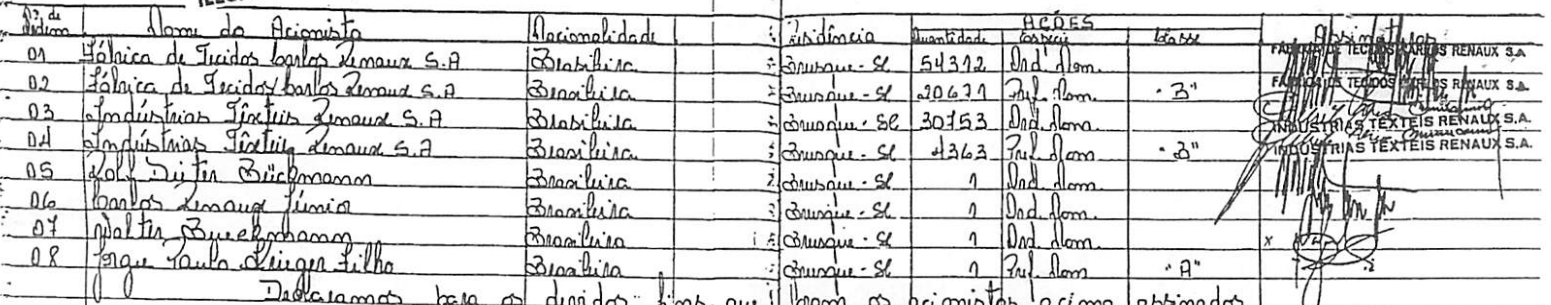 Nº de Ordem Nome do Acionista Nacionalidade Residência AÇÕES Assinaturas
Quantidade Espécie Classe
01 Fábrica de Tecidos Carlos Renaux S.A Brasileira Brusque-SC 54312 Ord. Nom. FÁBRICA DE TECIDOS CARLOS RENAUX S.A.
02 Fábrica de Tecidos Carlos Renaux S.A Brasileira Brusque-SC Pref. Nom. "B" FÁBRICA DE TECIDOS CARLOS RENAUX S.A.
03 Indústrias Têxteis Renaux S.A Brasileira Brusque-SC 30153 Ord. Nom. INDÚSTRIAS TÊXTEIS RENAUX S.A.
04 Indústrias Têxteis Renaux S.A Brasileira Brusque-SC 4363 Pref. Nom "B" INDÚSTRIAS TÊXTEIS RENAUX S.A.
05 Rolf Dieter Bückmann Brasileira Brusque-SC 1 Ord. Nom.
06 Carlos Renaux Júnior Brasileira Brusque-SC 1 Ord. Nom.
07 Walter Bueckmann Brasileira Brusque-SC 1 Ord. Nom. x
08 Jorge Paulo Krieger Filho Brasileira Brusque-SC 1 Pref. Nom "A"
Declaramos para os devidos fins que foram os acionistas acima assinados